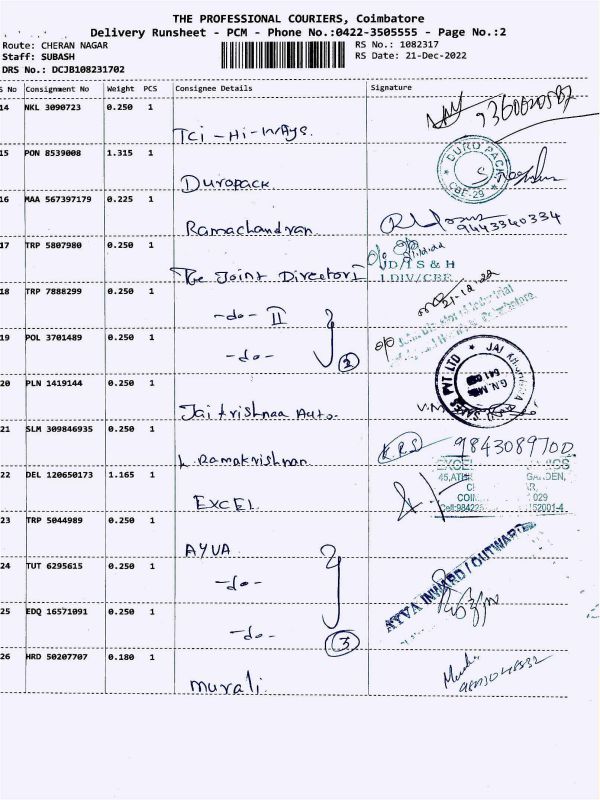 THE PROFESSIONAL COURIERS, Coimbatore
Delivery Runsheet - PCM - Phone No.:0422-3505555 - Page No.:2
Route: CHERAN NAGAR
RS No.: 1082317
Staff: SUBASH
RS Date: 21-Dec-2022
DRS No.: DCJB108231702
S No Consignment No Weight PCS Consignee Details Signature
14 NKL 3090723 0.250 1
TCi - Hi-Ways.
15 PON 8539008 1.315 1
Duropack
DURO PACK
CBE-29
16 MAA 567397179 0.225 1
Ramachandran
9443340334
17 TRP 5807980 0.250 1
The Joint Director I
JD/I S & H
I DIV/CBE
18 TRP 7888299 0.250 1
-do- II
21-12-22
19 POL 3701489 0.250 1
-do-
2
20 PLN 1419144 0.250 1
Jai krishnaa Auto.
21 SLM 309846935 0.250 1
L. Ramakrishnan
K.R.S
9843089700
22 DEL 120650173 1.165 1
EXCEL
EXCEL
029
52001-4
23 TRP 5044989 0.250 1
AYVA
24 TUT 6295615 0.250 1
-do-
AYVA INWARD / OUTWARD
25 EDQ 16571091 0.250 1
-do-
3
26 HRD 50207707 0.180 1
murali